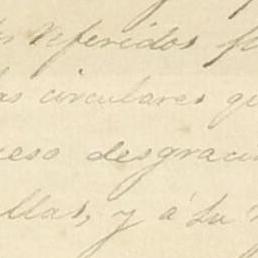 referidos
as circulares
eso desgraci
llas, y á su